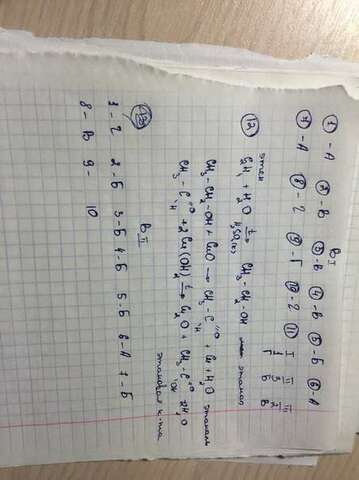 В I
① -А ② -В ③ -В ④ -В ⑤ -Б ⑥ -А
⑦ -А ⑧ - г ⑨ - Г ⑩ - г ⑪ I II
Г Б В
этен
⑫ C₂H₄ + H₂O → CH₃-CH₂-OH — этанол
t H₂SO₄(к)
CH₃-CH₂-OH + CuO → CH₃-C=O H + Cu + H₂O этаналь
CH₃-C=O H + 2Cu(OH)₂ →t Cu₂O + CH₃-C=O OH 2H₂O
этановая к-та
В II
1 - г 2 - Б 3 - Б 4 - Б 5 - Б 6 - А 7 - Б
8 - В 9 - 10